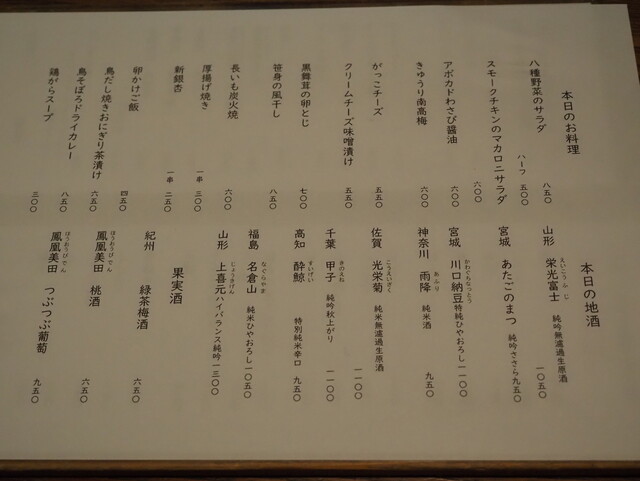 本日のお料理
八種野菜のサラダ 八五〇
ハーフ 五〇〇
スモークチキンのマカロニサラダ 六〇〇
アボカドわさび醤油 六〇〇
きゅうり南高梅 六〇〇
がっこチーズ 五五〇
クリームチーズ味噌漬け 五五〇
黒舞茸の卵とじ 七〇〇
笹身の風干し 八五〇
長いも炭火焼 六〇〇
厚揚げ焼き 一串 三〇〇
新銀杏 一串 二五〇
卵かけご飯 四五〇
鳥だし焼きおにぎり茶漬け 六五〇
鳥そぼろドライカレー 八五〇
鶏がらスープ 三〇〇
本日の地酒
山形 栄光富士 えいこうふじ 純吟無濾過生原酒 一〇五〇
宮城 あたごのまつ 純吟ささら 九五〇
宮城 川口納豆 かわぐちなっとう 特純ひやおろし 一一〇〇
神奈川 雨降 あふり 純米酒 九五〇
佐賀 光栄菊 こうえいぎく 純米無濾過生原酒 一一〇〇
千葉 甲子 きのえね 純吟秋上がり 一一〇〇
高知 酔鯨 すいげい 特別純米辛口 九五〇
福島 名倉山 なぐらやま 純米ひやおろし 一〇五〇
山形 上喜元 じょうきげん ハイバランス純吟 一三〇〇
果実酒
紀州 緑茶梅酒 六五〇
鳳凰美田 ほうおうびでん 桃酒 六五〇
鳳凰美田 ほうおうびでん つぶつぶ葡萄 九五〇